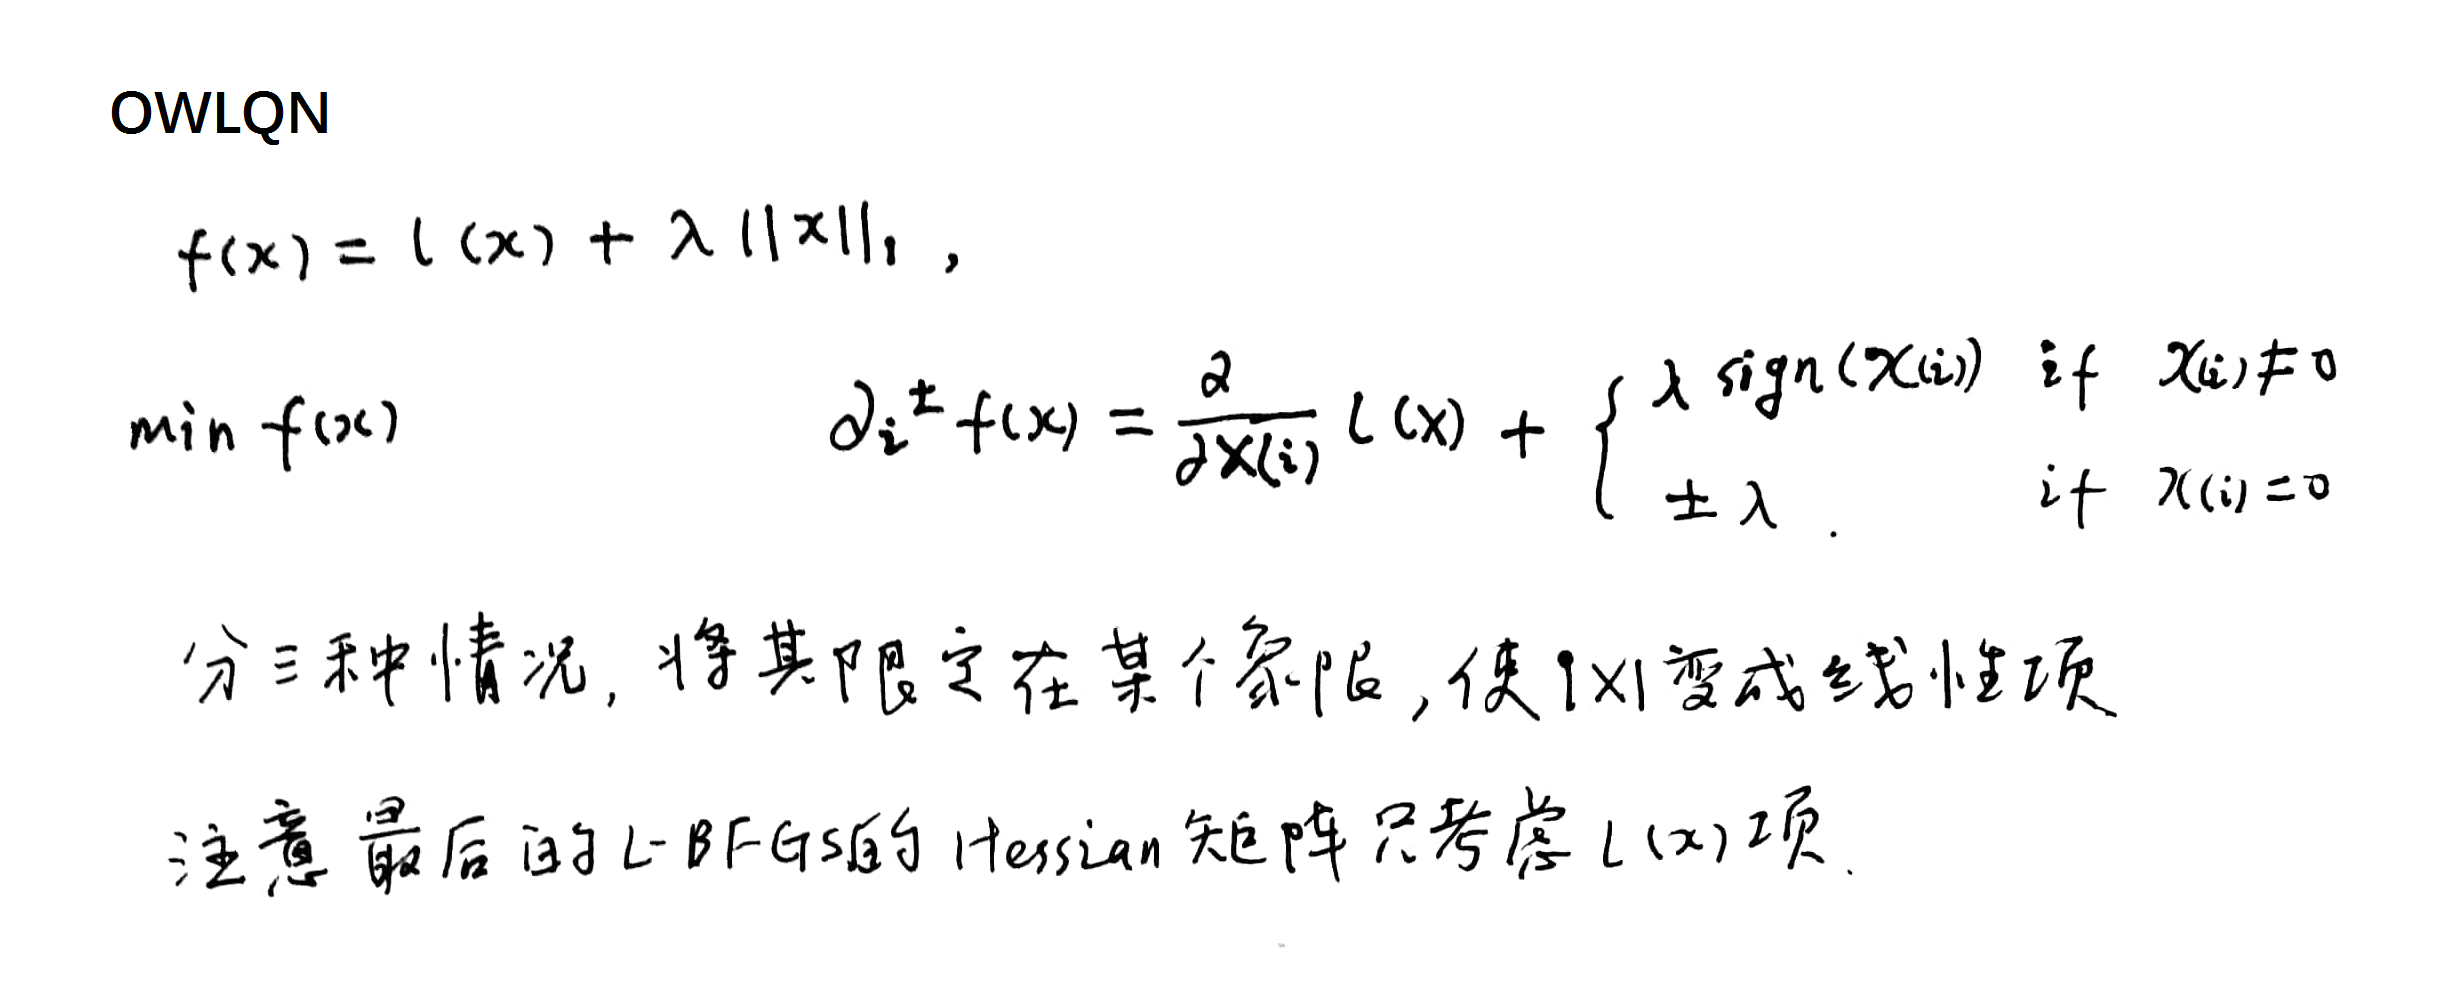 OWLQN
f(x) = l(x) + λ||x||₁ ,
min f(x) ∂ᵢ^± f(x) = ∂/∂x(i) l(x) + { λ sign(x(i)) if x(i)≠0
± λ . if x(i)=0
分三种情况, 将其限定在某个象限, 使|x|变成线性项
注意最后的L-BFGS的Hessian矩阵只考虑l(x)项.